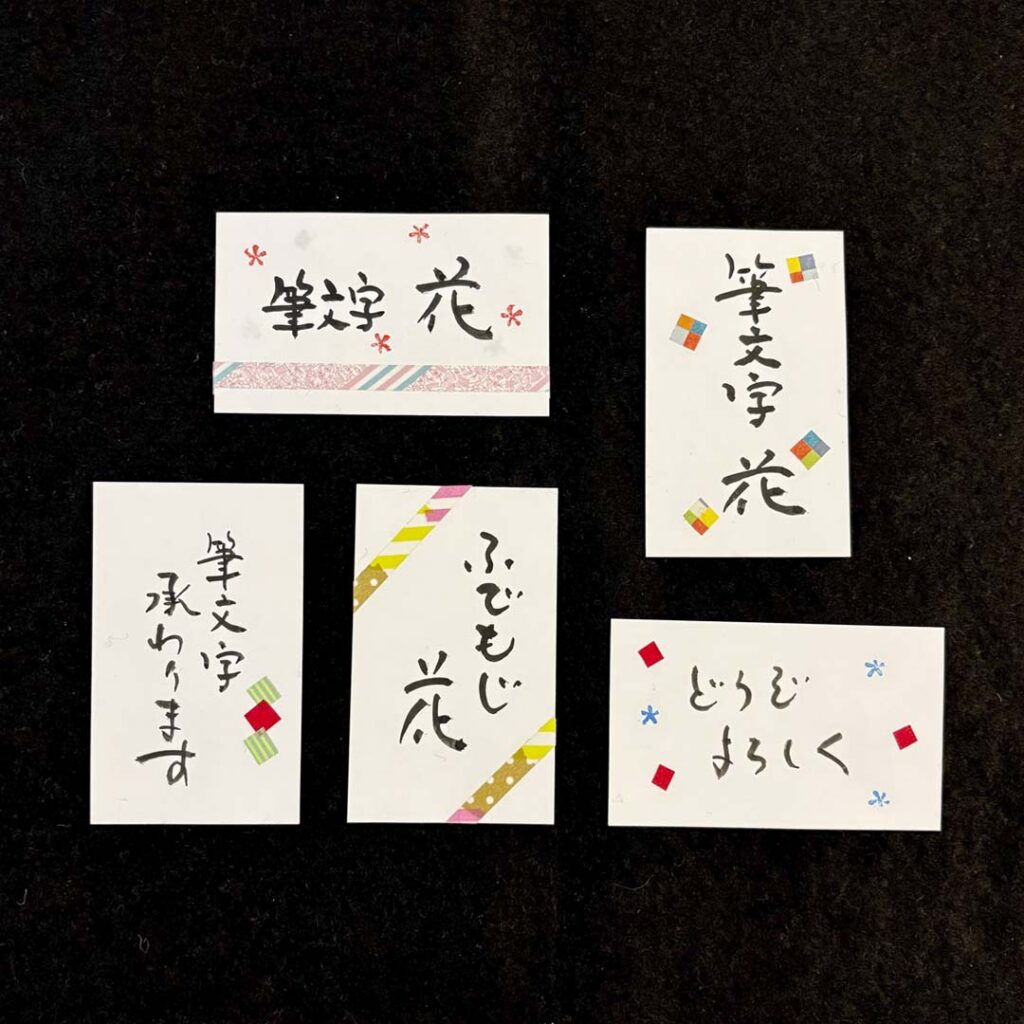 筆文字 花
筆文字 花
筆文字
承わります
ふでもじ
花
どうぞ
よろしく